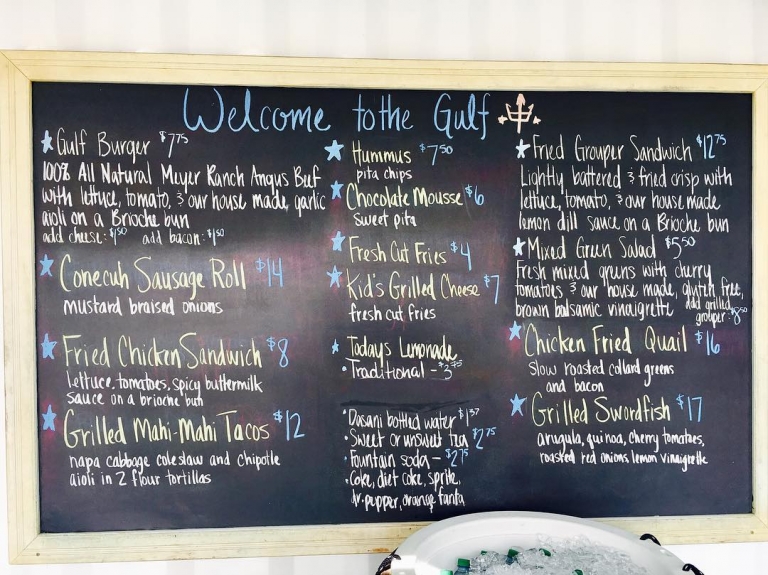 Welcome to the Gulf
Gulf Burger $7.75
100% All Natural Meyer Ranch Angus Beef
with lettuce, tomato, & our house made, garlic
aioli on a Brioche bun
add cheese: $1.50 add bacon: $1.50
Conecuh Sausage Roll $14
mustard braised onions
Fried Chicken Sandwich $8
lettuce, tomatoes, spicy buttermilk
sauce on a brioche bun
Grilled Mahi-Mahi Tacos $12
napa cabbage coleslaw and chipotle
aioli in 2 flour tortillas
Hummus $7.50
pita chips
Chocolate Mousse $6
Sweet pita
Fresh Cut Fries $4
Kid's Grilled Cheese $7
fresh cut fries
Today's Lemonade
• Traditional - $3.75
• Dasani bottled water $1.37
• Sweet or unsweet tea $2.75
• Fountain soda - $2.75
• Coke, diet coke, sprite,
dr. pepper, orange fanta
Fried Grouper Sandwich $12.75
Lightly battered & fried crisp with
lettuce, tomato, & our house made
lemon dill sauce on a Brioche bun
Mixed Green Salad $5.50
Fresh mixed greens with cherry
tomatoes & our house made, gluten free,
brown balsamic vinaigrette
add grilled
grouper: $8.50
Chicken Fried Quail $16
slow roasted collard greens
and bacon
Grilled Swordfish $17
arugula, quinoa, cherry tomatoes,
roasted red onions, lemon vinaigrette